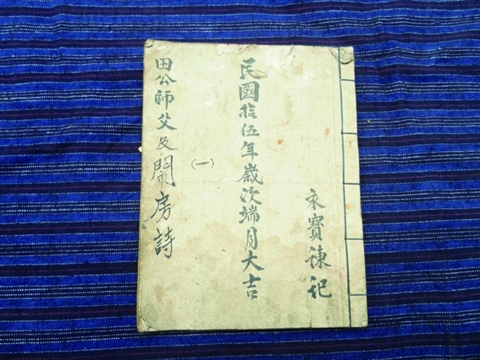 永寳諫記
民國拾伍年歲次端月大吉
(一)
田公師父及鬧房詩